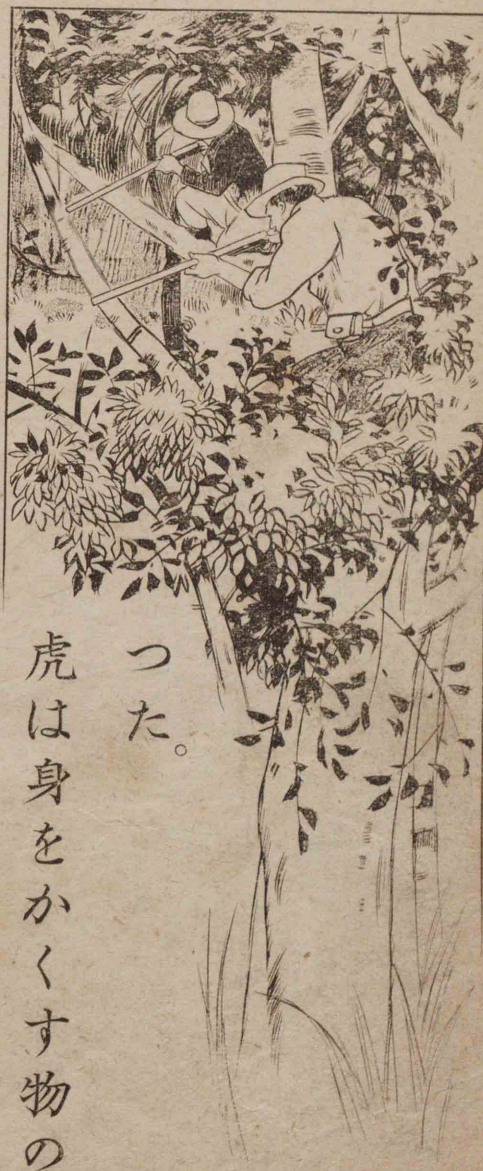 つた。
虎は身をかくす物の